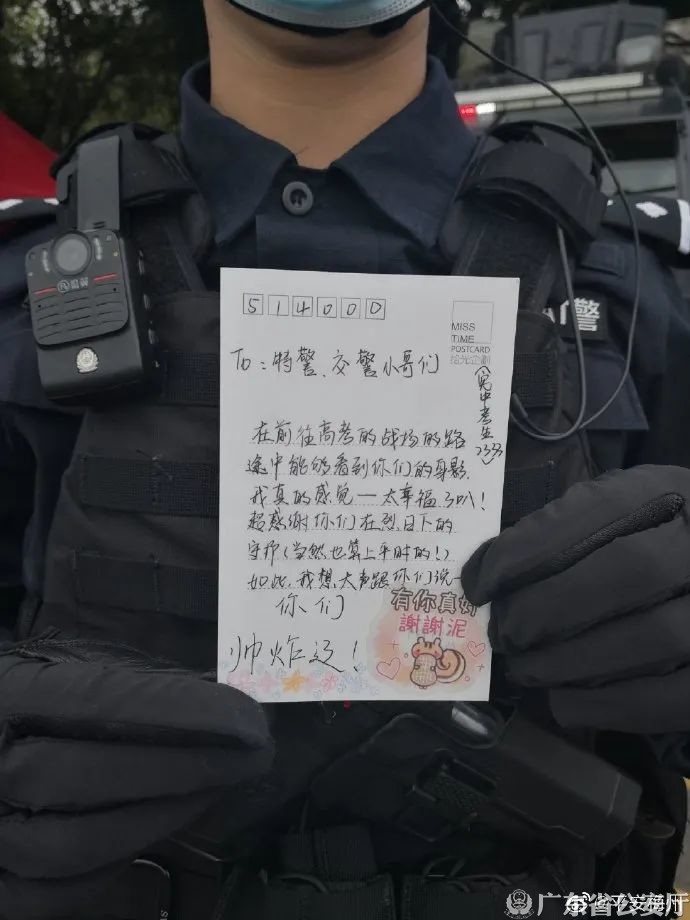 514000
MISS
TIME
POSTCARD
拾光企劃
To：特警、交警小哥们
在前往高考的战场的路
途中能够看到你们的身影，
我真的感觉一太幸福了叭！
超感谢你们在烈日下的
守护（当然也算上平时的！）
如此，我想大声跟你们说一
你们
帅炸辽！
有你真好
謝謝泥
警
广东省公安厅